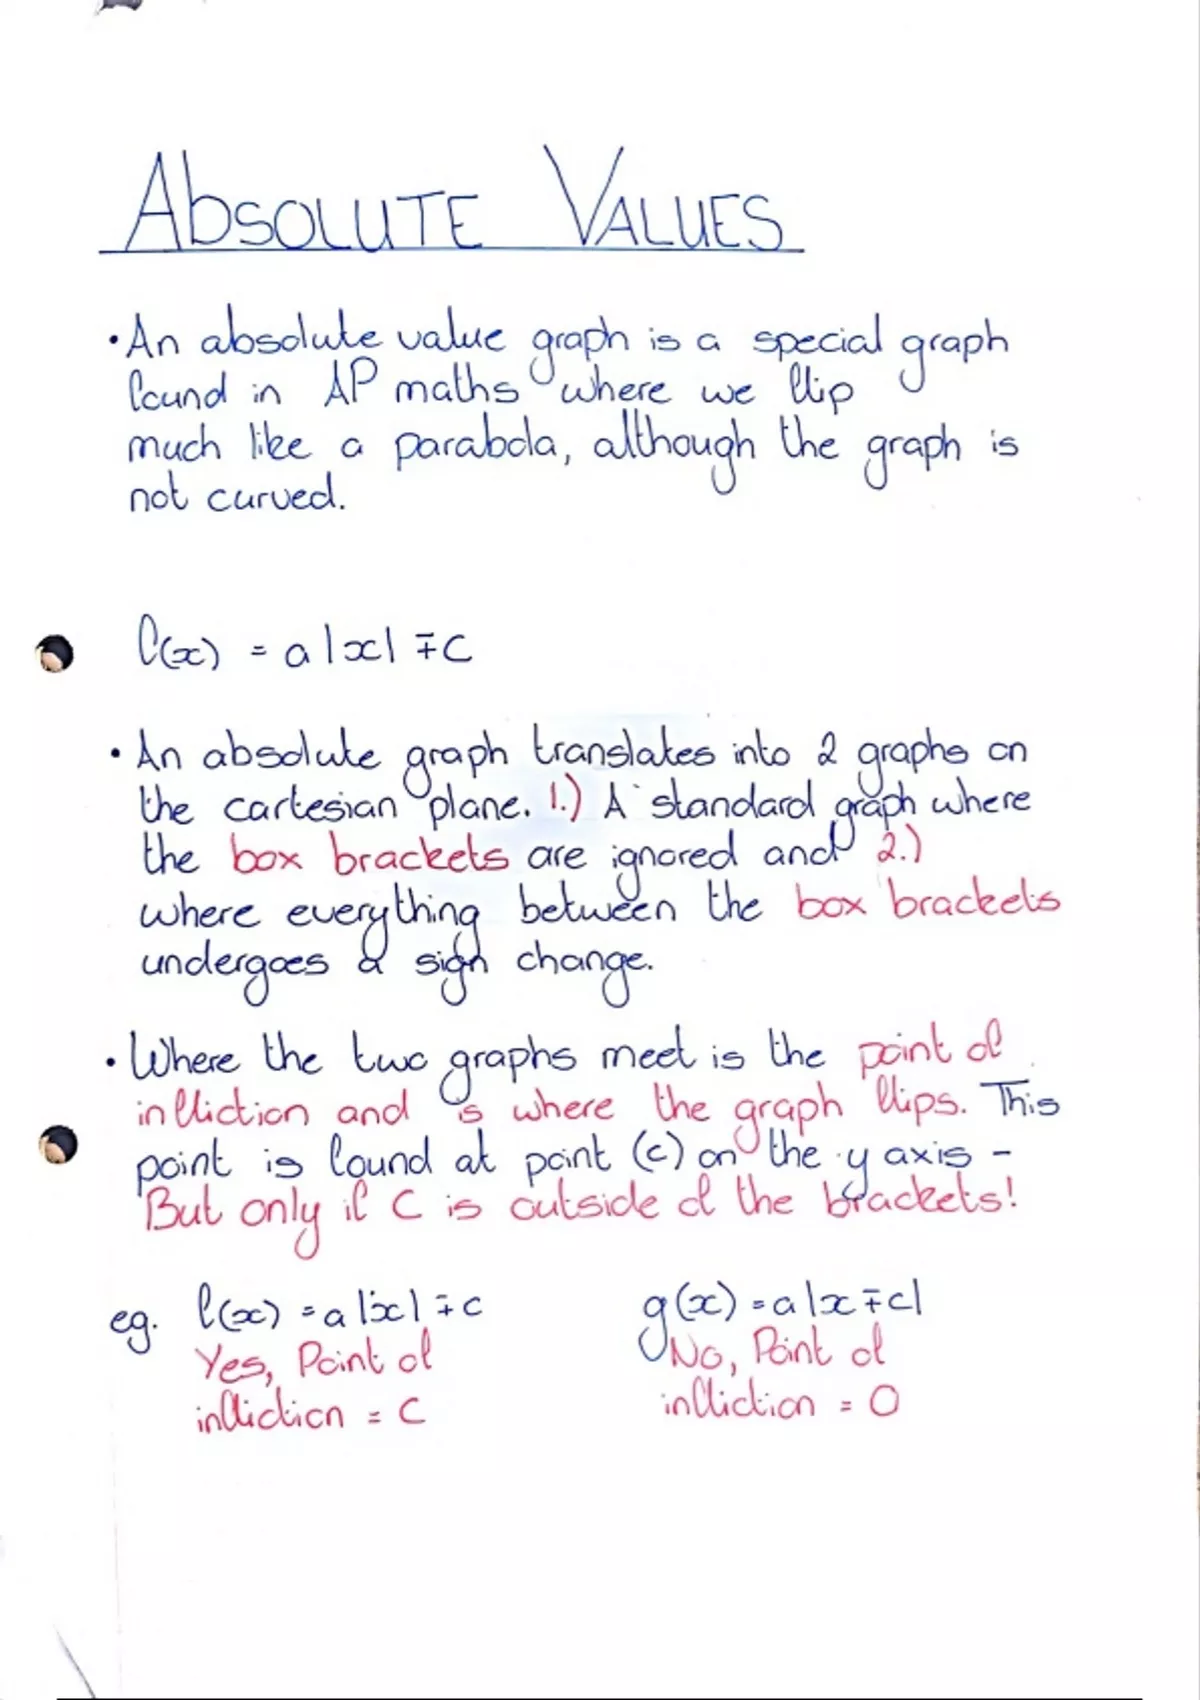 ABSOLUTE VALUES
• An absolute value graph is a special graph
found in AP maths where we flip
much like a parabola, although the graph is
not curved.
f(x) = a|x| ∓ c
• An absolute graph translates into 2 graphs on
the cartesian plane. 1.) A standard graph where
the box brackets are ignored and 2.)
where everything between the box brackets
undergoes a sign change.
• Where the two graphs meet is the point of
infliction and is where the graph flips. This
point is found at point (c) on the y axis -
But only if C is outside of the brackets!
eg. f(x) = a|x| ∓ c g(x) = a|x ∓ c|
Yes, Point of No, Point of
infliction = C infliction = 0